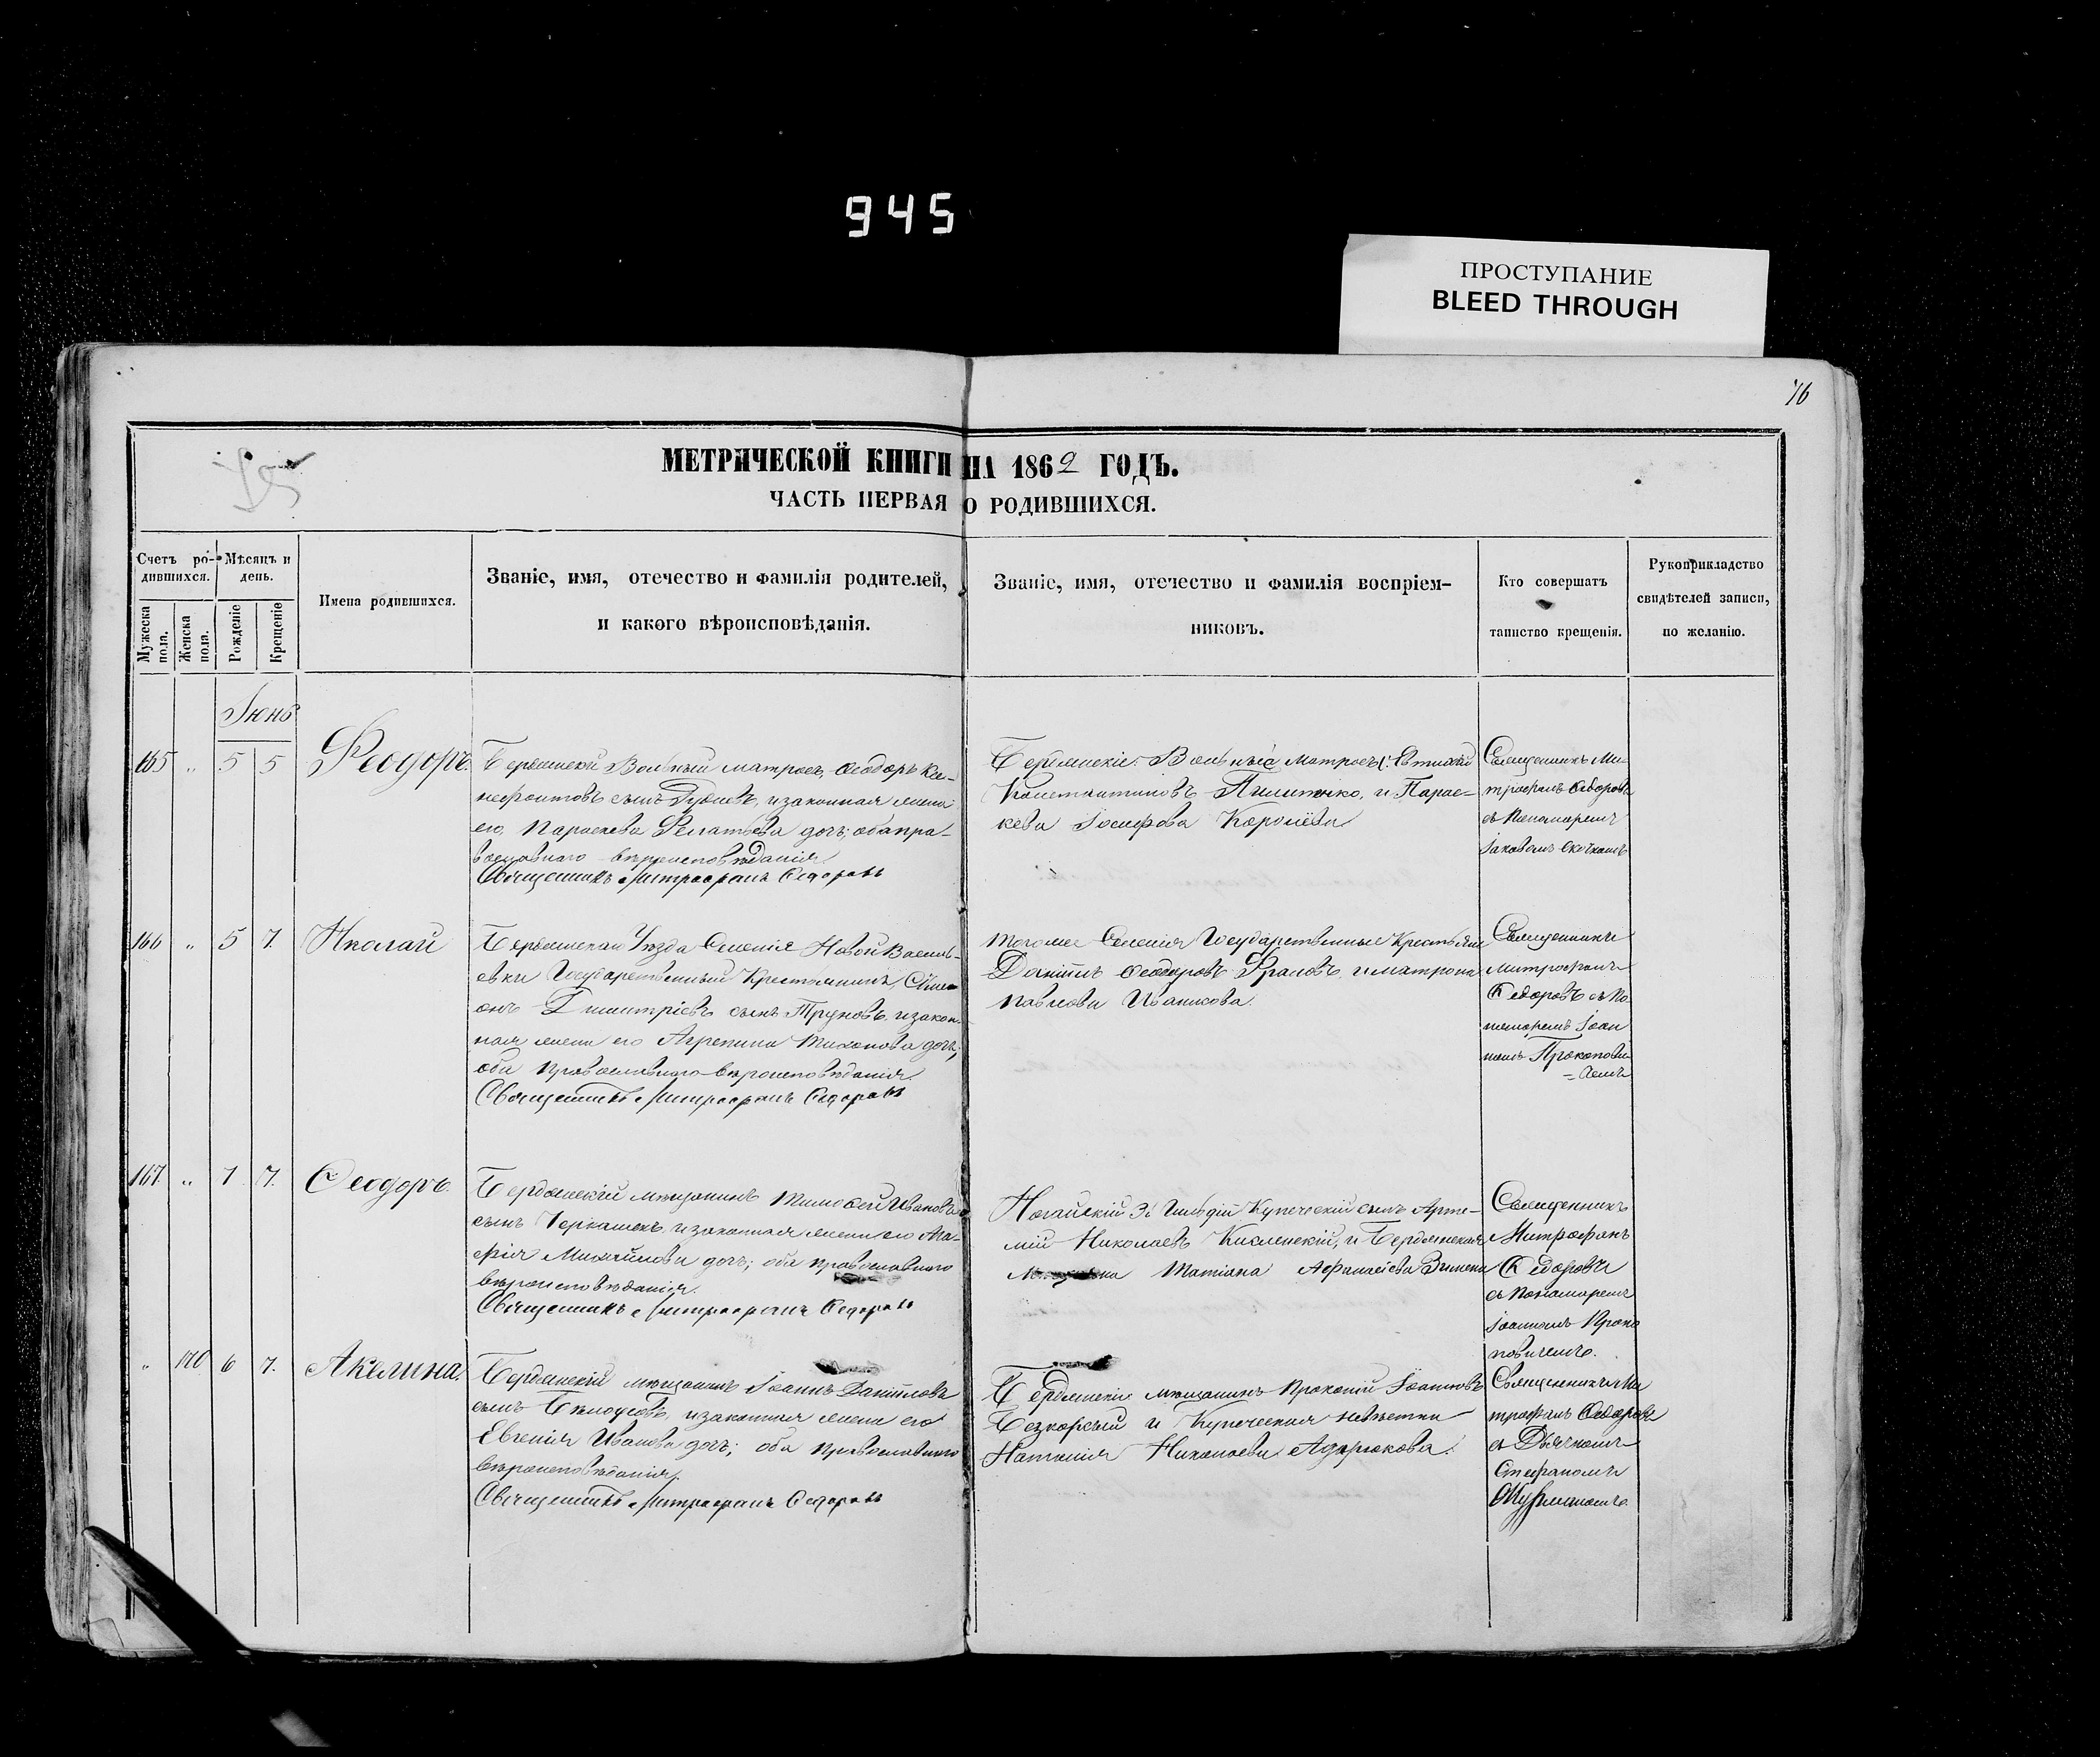 945
ПРОСТУПАНИЕ
BLEED THROUGH
76
МЕТРИЧЕСКОЙ КНИГИ НА 1862 ГОДЪ.
ЧАСТЬ ПЕРВАЯ О РОДИВШИХСЯ.
Счетъ ро-
дившихся.
Мужеска пола.
Женска пола.
Мѣсяцъ и
день.
Рожденіе
Крещеніе
Имена родившихся.
Званіе, имя, отечество и фамилія родителей,
и какого вѣроисповѣданія.
Званіе, имя, отечество и фамилія воспріем-
никовъ.
Кто совершатъ
таинство крещенія.
Рукоприкладство
свидѣтелей записи,
по желанію.
Іюнь
165 " 5 5
Феодоръ.
Вольный матросъ, Ѳеодоръ
сынъ и законная жена
его, Параскева дочь; оба пра-
вославнаго вѣроисповѣданія.
Священникъ Митрофанъ Ѳедоровъ
Бердянскіе: Вольный матросъ
Константиновъ и Парас-
кева Іосифова
Священникъ Ми-
трофанъ Ѳедоровъ
съ Пономаремъ
Іаковомъ
166 " 5 7.
Николай
Бердянскаго Уѣзда Селенія Новой Василь-
евки Государственный Крестьянинъ, Симе-
онъ Димитріевъ сынъ Труновъ, и закон-
ная жена его Агрепина Тихонова дочь;
оба православнаго вѣроисповѣданія.
Священникъ Митрофанъ Ѳедоровъ
Тогоже Селенія Государственные Крестьяне
Даніилъ Ѳеодоровъ и Матрона
Павлова
Священникъ
Митрофанъ
Ѳедоровъ съ По-
номаремъ Іоан
номъ Прокопови
=чемъ
167. " 7 7.
Ѳеодоръ.
Бердянскій мѣщанинъ Тимофей Ивановъ
сынъ и законная жена его Ага-
фія Михайлова дочь; оба православнаго
вѣроисповѣданія.
Священникъ Митрофанъ Ѳедоровъ
Ногайскій 3й Гильдіи Купеческій сынъ Арте-
мій Николаевъ и Бердянская
Татіана Афанасіева
Священникъ
Митрофанъ
Ѳедоровъ
съ Пономаремъ
Іоанномъ Проко
повичемъ.
" 170 6 7.
Акелина.
Бердянскій мѣщанинъ Іоаннъ Даніиловъ
сынъ и законная жена его
Евгенія Иванова дочь; оба православнаго
вѣроисповѣданія.
Священникъ Митрофанъ Ѳедоровъ
Бердянскіе мѣщанинъ Прокопій Іоанновъ
и Купеческая невѣстка
Наталія Николаева Адарюкова.
Священникъ Ми
трофанъ Ѳедоровъ
съ Дьячкомъ
Стефаномъ